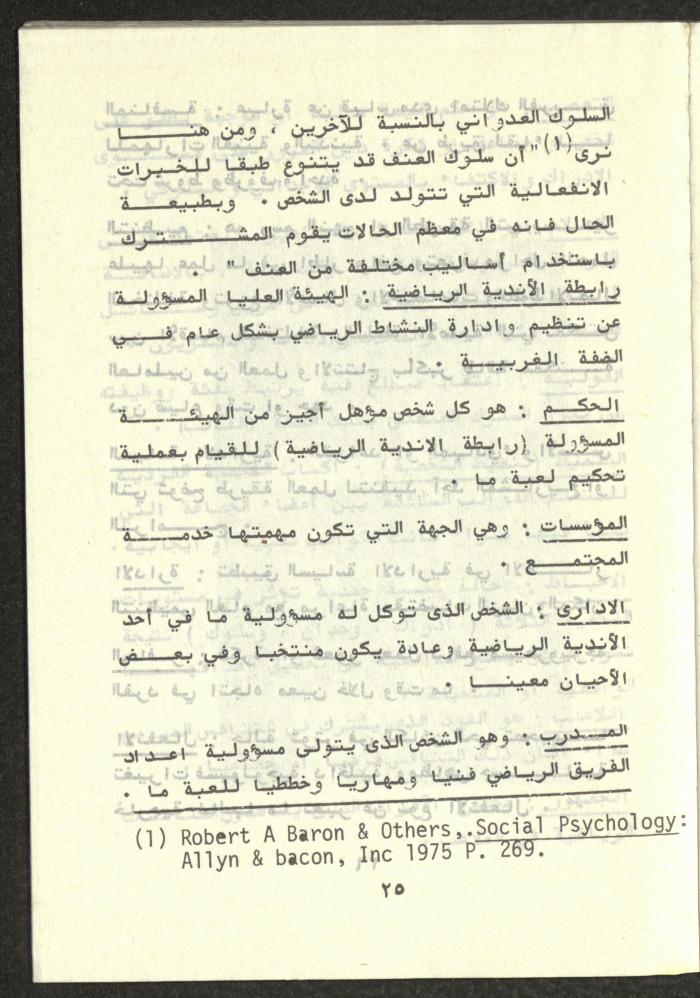 السلوك العدواني بالنسبة للآخرين ، ومن هنـــا
نرى(١)"أن سلوك العنف قد يتنوع طبقا للخبرات
الانفعالية التي تتولد لدى الشخص . وبطبيعـــة
الحال فانه في معظم الحالات يقوم المشـــترك
باستخدام أساليب مختلفة من العنف " .
رابطة الأندية الرياضية : الهيئة العليا المسؤولـة
عن تنظيم وادارة النشاط الرياضي بشكل عام فـــي
الضفة الغربيـــة .
الحكــم : هو كل شخص مؤهل أجيز من الهيئـــة
المسؤولة (رابطة الاندية الرياضية) للقيام بعملية
تحكيم لعبة ما .
المؤسسات : وهي الجهة التي تكون مهمتها خدمـــة
المجتمـــع .
الادارى : الشخص الذى توكل له مسؤولية ما في أحد
الأندية الرياضية وعادة يكون منتخبا وفي بعـــض
الأحيان معينـــا .
المـــدرب : وهو الشخص الذى يتولى مسؤولية اعداد
الفريق الرياضي فنيا ومهاريا وخططيا للعبة ما .
(1) Robert A Baron & Others,.Social Psychology:
Allyn & bacon, Inc 1975 P. 269.
٢٥